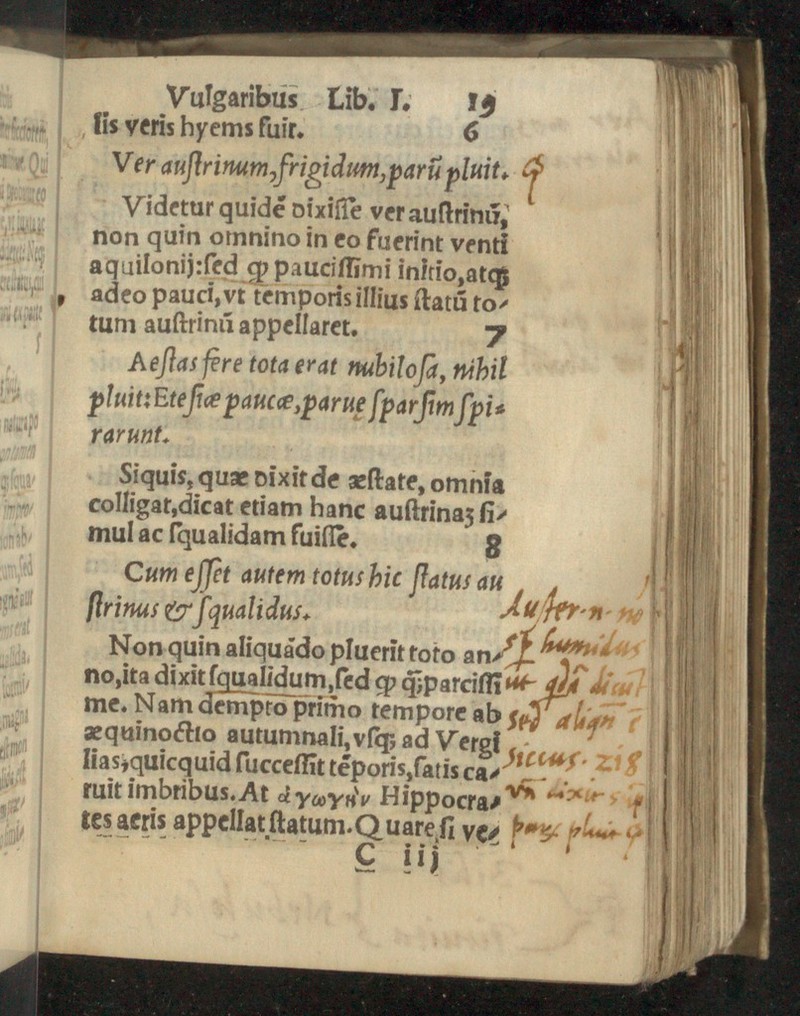 Vulgaribus Lib. I. 19
lis veris hyems fuit. 6
Ver auſtrinum, frigidum, parū pluit.
Videtur quidē dixiſſe ver auſtrinū,
non quin omnino in eo fuerint venti
aquilonij: ſed ꝙ pauciſſimi initio, atqꝫ
adeo pauci, vt temporis illius ſtatū to⸗
tum auſtrinū appellaret. 7
Aeſtas fere tota erat nubiloſa, nihil
pluit: Eteſiæ paucæ, parue ſparſim ſpi⸗
rarunt.
Siquis, quæ dixit de æſtate, omnia
colligat, dicat etiam hanc auſtrinaꝫ ſi⸗
mul ac ſqualidam fuiſſe. 8
Cum eſſet autem totus hic ſtatus au
ſtrinus & ſqualidus.
Non quin aliquādo pluerit toto an⸗
no, ita dixit ſqualidum, ſed ꝙ ꝗꝫparciſſi
me. Nam dempto primo tempore ab
æquinoctio autumnali, vſqꝫ ad Vergi
lias, quicquid ſucceſſit tēporis, ſatis ca⸗
ruit imbribus. At ἀγωγὴν Hippocra⸗
tes aeris appellat ſtatum. Quare ſi ve⸗
Auſter
humidus
ſed
ſiccus
C iij